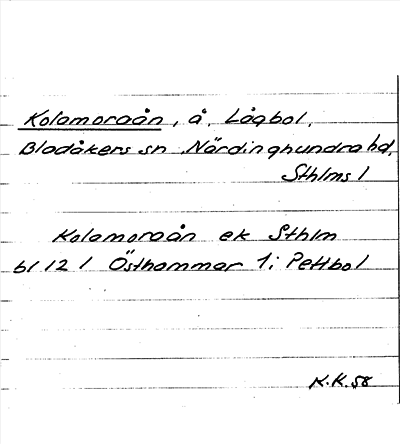 Kolamoraån, å, Lågbol,
Bladåkers sn Närdinghundra hd,
Sthlms l
Kolamoraån ek Sthlm
bl 12 l Östhammar 1; Pettbol
K.K. 58